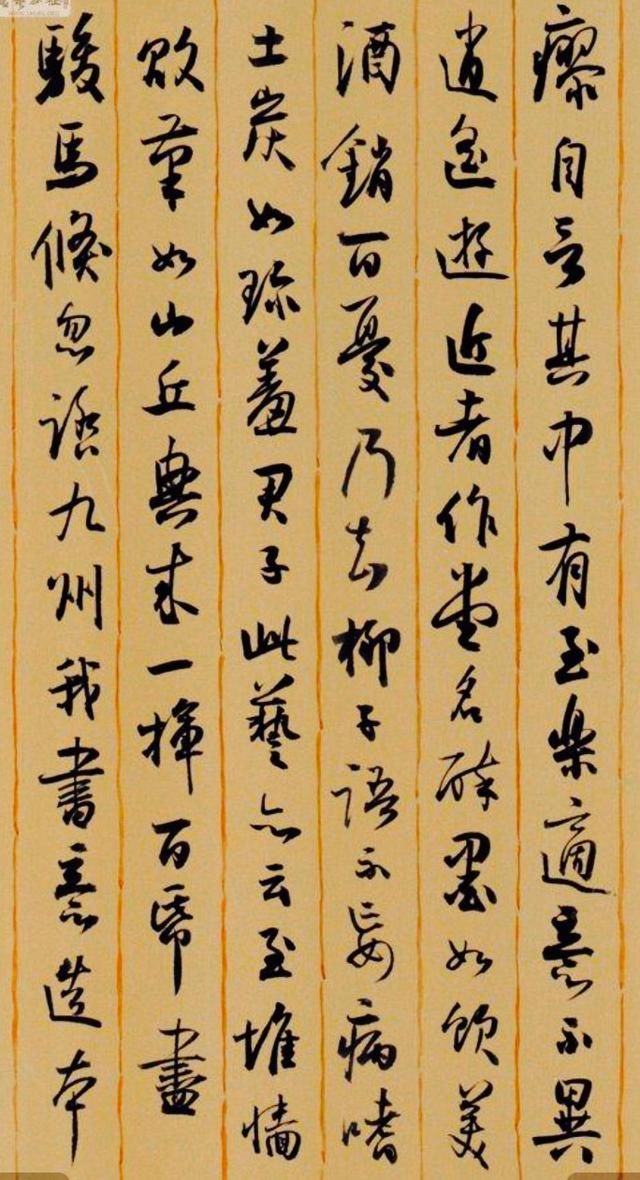 瘳自言其中有至樂適意不異
逍遙遊近者作堂名醉墨如飲美
酒銷百憂乃知柳子語不妄病嗜
土炭如珍羞君子此藝亦云至堆墻
敗筆如山丘興來一揮百帋盡
駿馬倏忽踏九州我書意造本